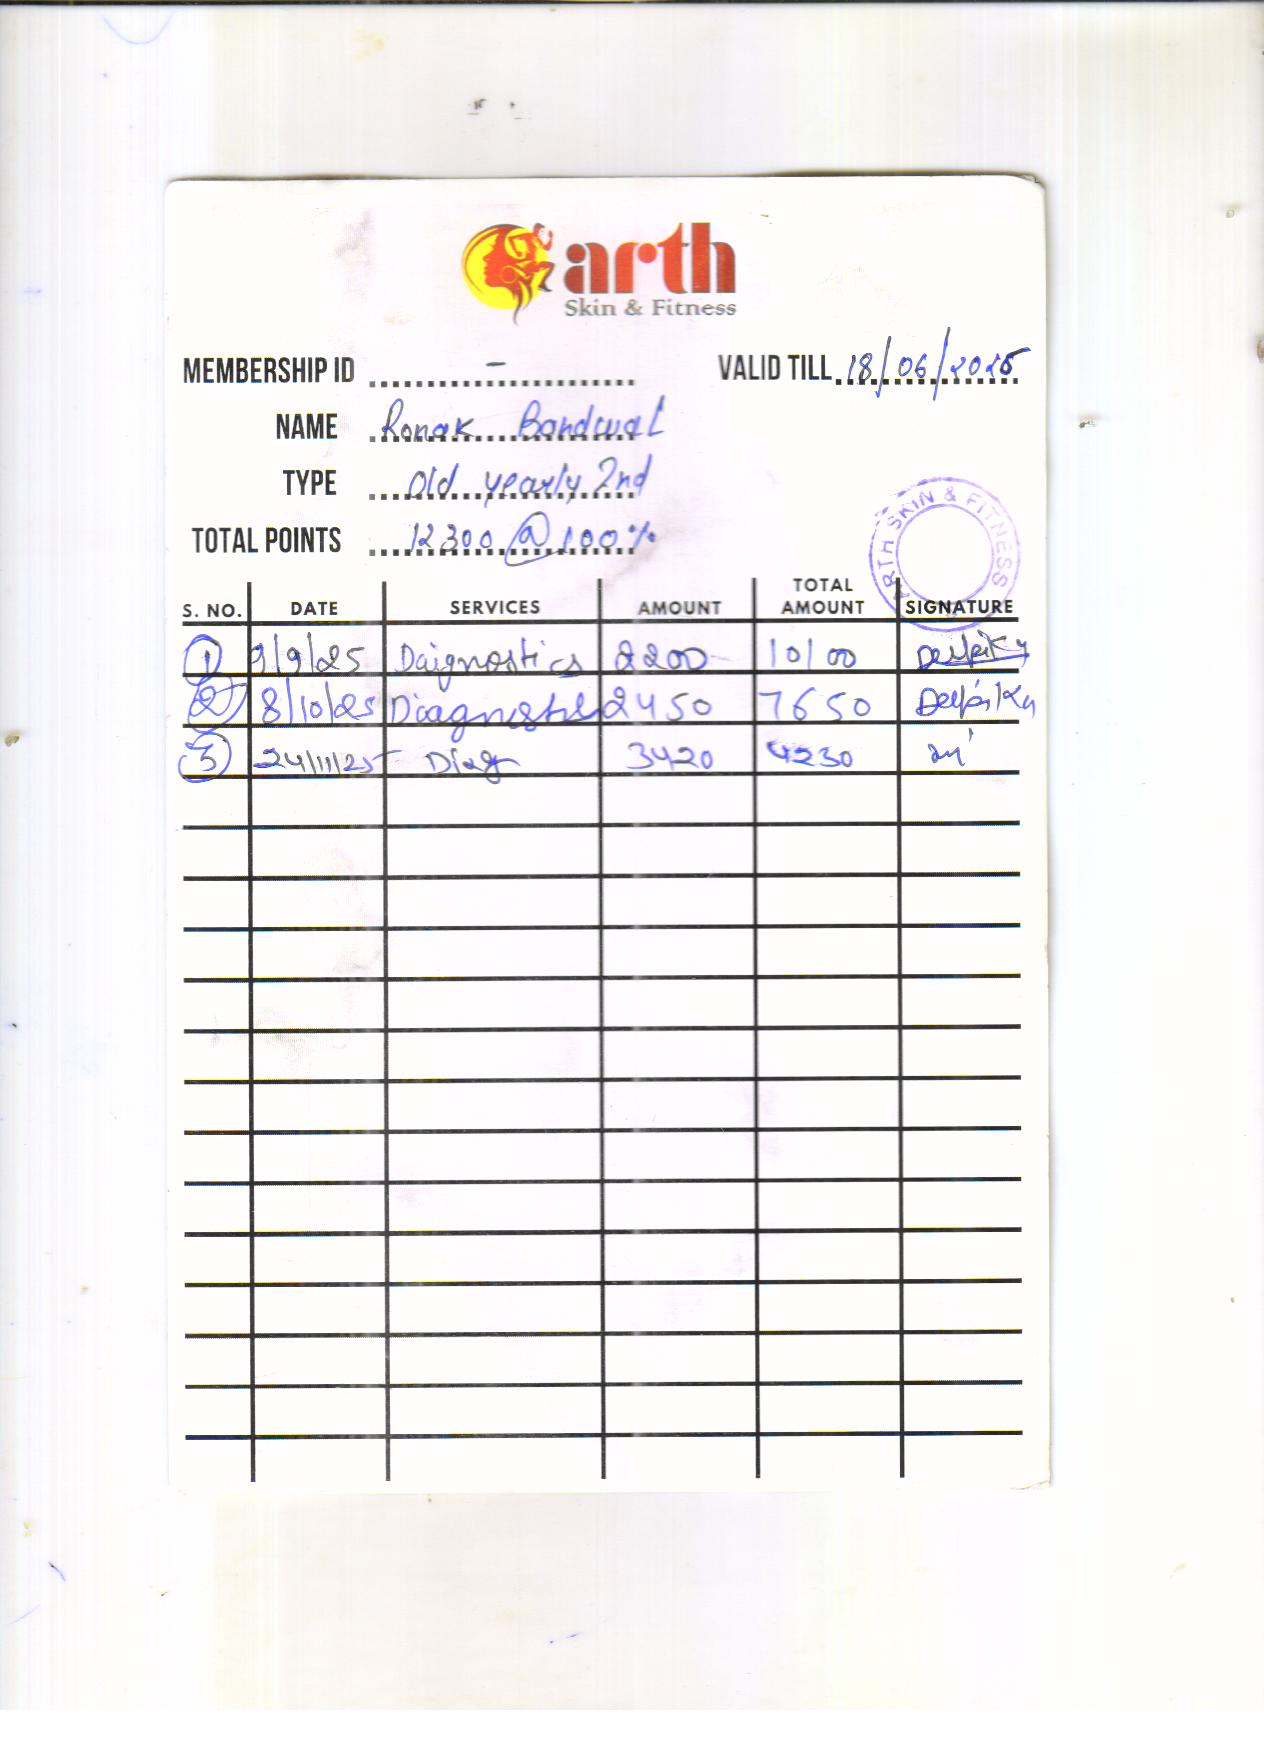 arth
Skin & Fitness
MEMBERSHIP ID - VALID TILL 18/06/2025
NAME Ronak Bandwal
TYPE Old yearly 2nd
TOTAL POINTS 12300 @ 100%
ARTH SKIN & FITNESS
S. NO. DATE SERVICES AMOUNT TOTAL AMOUNT SIGNATURE
1 9/9/25 Daignostics 2200 10100 Deepika
2 8/10/25 Diagnostics 2450 7650 Deepika
3 24/11/25 Diag 3420 4230